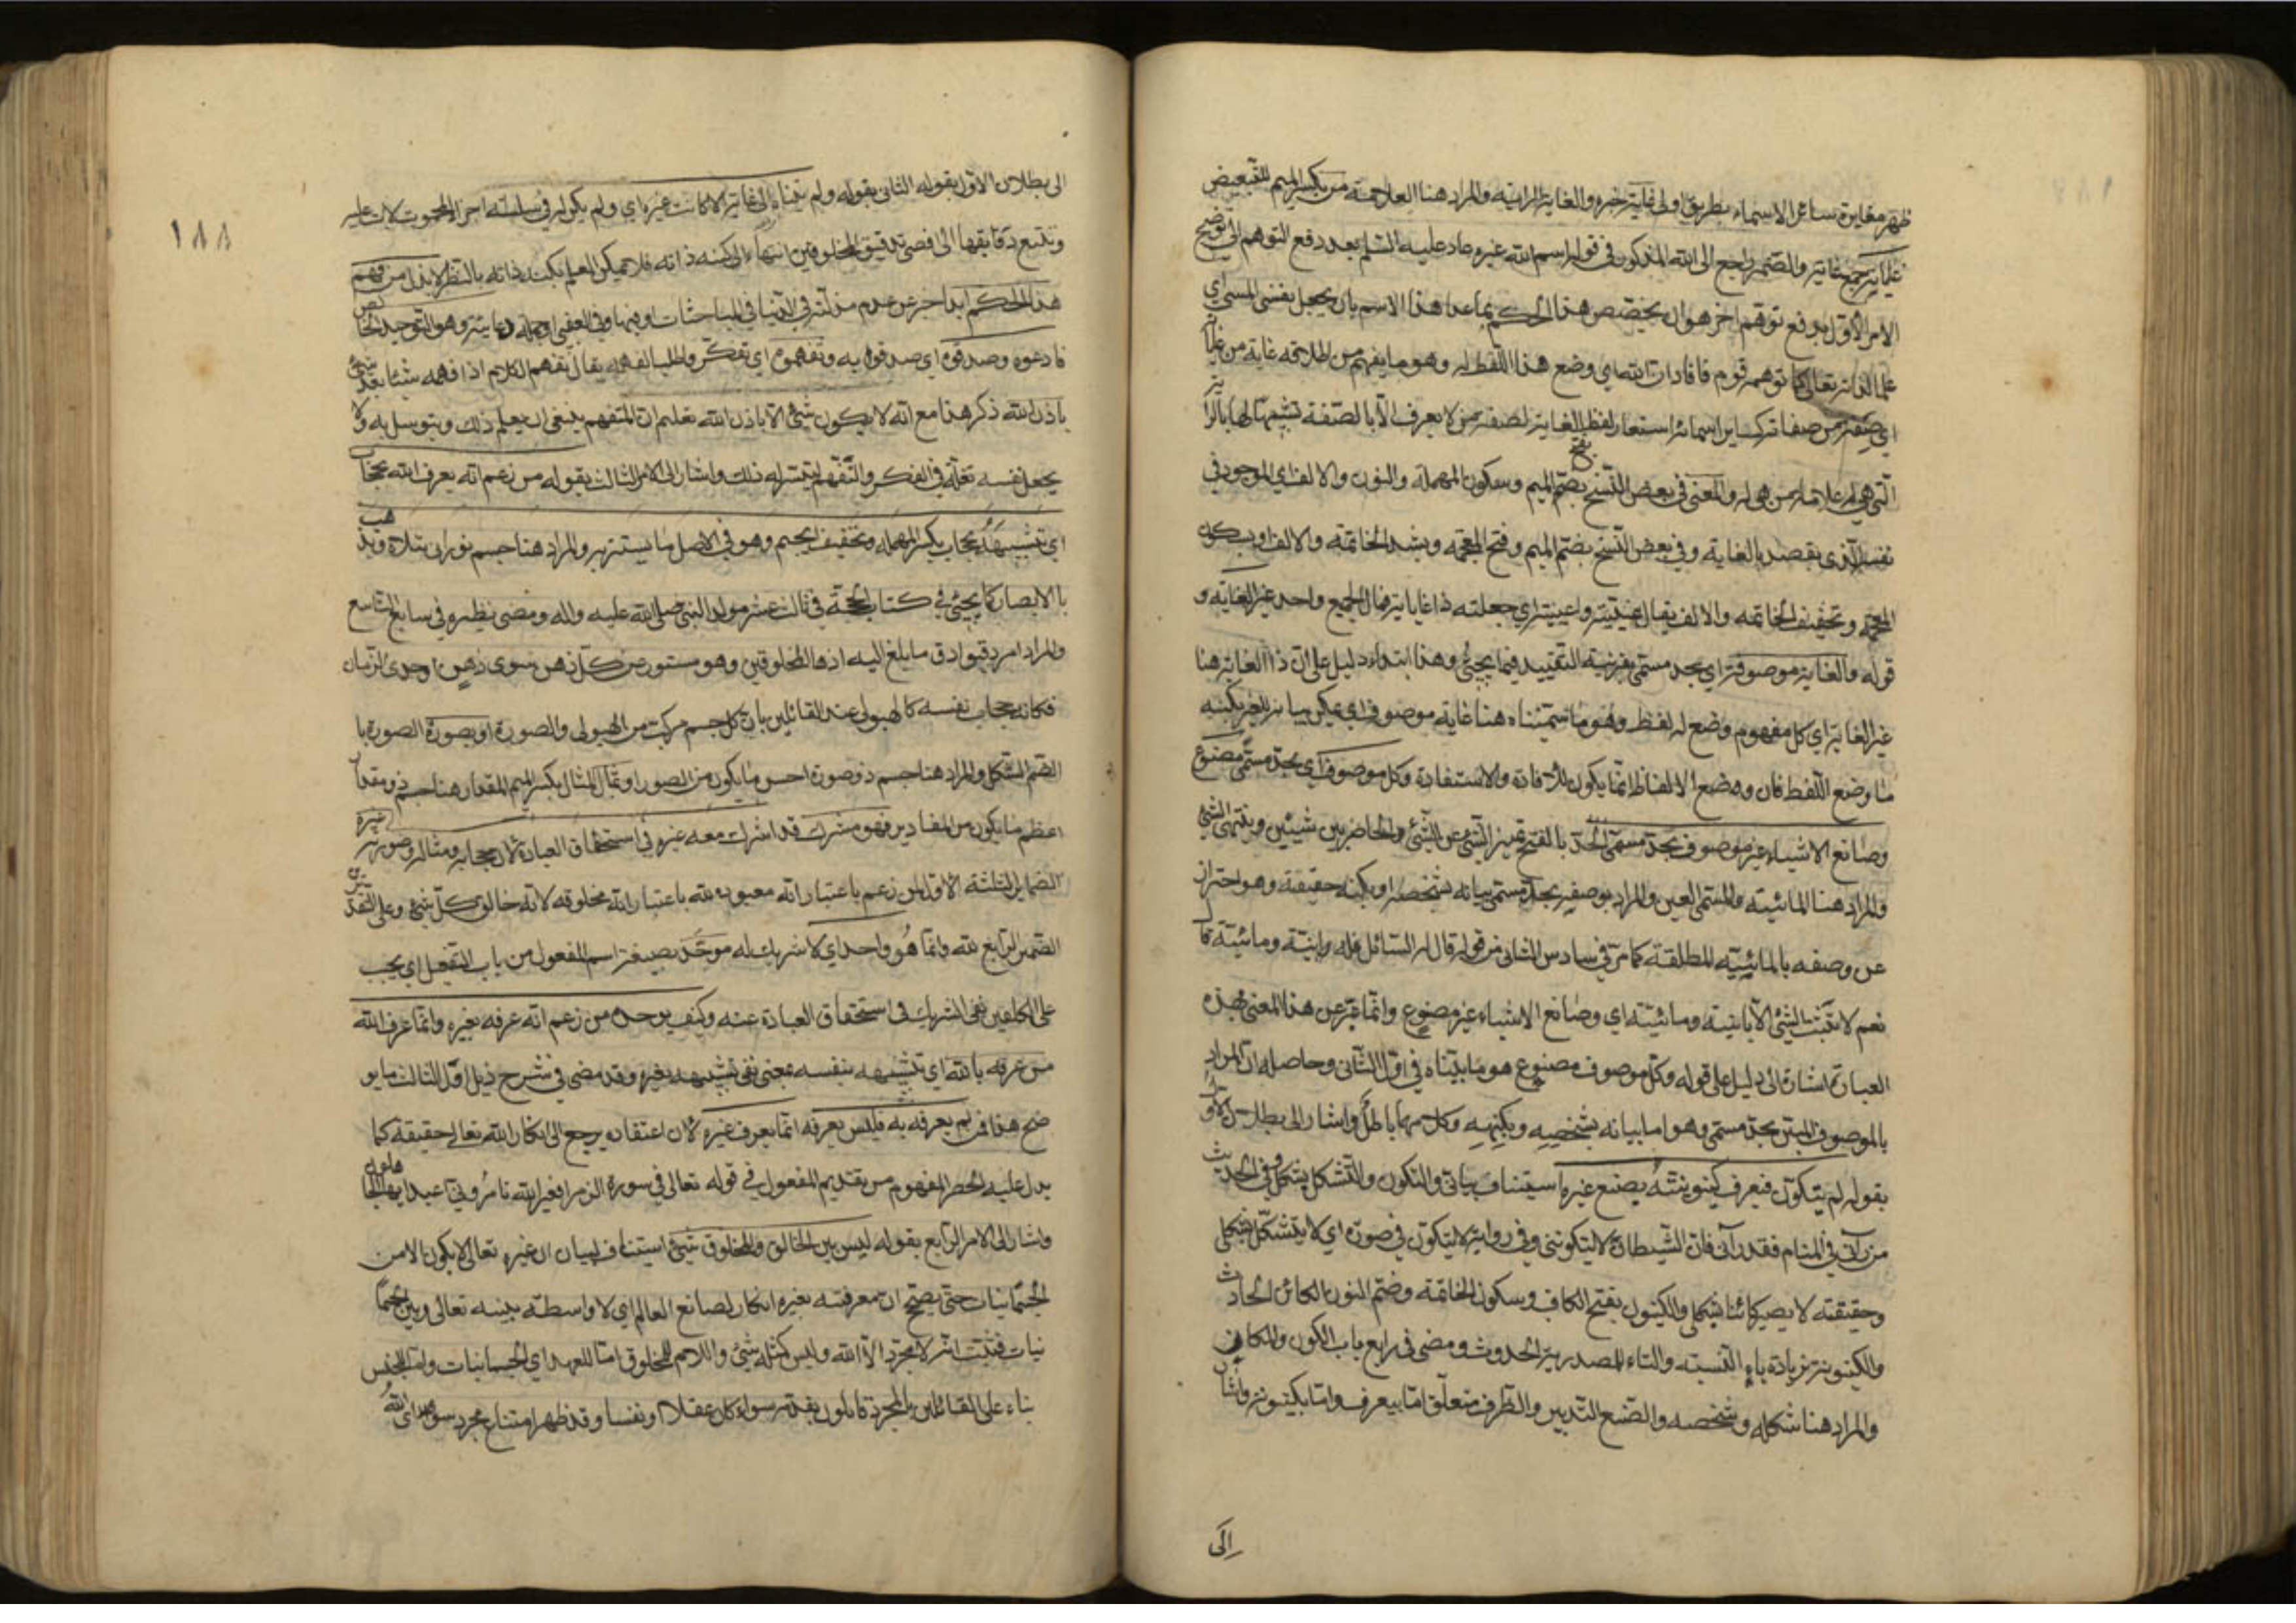 ظهر مغايرة سائر الاسماء بطريق اولى غايته خبره والغاية الراية والمراد هنا العلامة من بكسر الميم للتبعيض
غاياته جمع غاية والضمير راجع الى الله المذكور في قوله اسم الله غيره عاد عليه السلم بعد دفع التوهم الى توضيح
الامر الاول بدفع توهم اخر هو ان يخصص هذا الحكم بما عدا هذا الاسم بان يجعل نفس المسمى اي
علما لذاته تعالى كما توهمه قوم فافاد ان الله اي وضع هذا اللفظ له وهو ما يفهم من اطلاقه غاية من غايا
اي صفة من صفاته كساير اسمائه استعار لفظ الغاية لصفة من لا يعرف الا بالصفة تشبيها لها بالرا
التي هي علامة لمن هي له والمعنى في بعض النسخ بضم الميم وسكون المهملة والنون والالف اي الموجود في
نفسه الذي يقصد بالغاية وفي بعض النسخ بضم الميم وفتح المعجمة وبشد الخاتمة والالف او بسكون
المعجمة وتخفيف الخاتمة والالف يقال غييته واغييته اي جعلته ذا غاية فمال الجميع واحد غير الغاية و
قوله والغاية موصوفة اي بحد مسمى بقرينة التقييد فيما يجيئ وهذا ابتداء دليل على ان ذا الغاية هنا
غير الغاية اي كل مفهوم وضع له لفظ وهو ما سميناه هنا غاية موصوف اي يمكن بيانه للغير بكنهه
ما وضع اللفظ فان وضع الالفاظ انما يكون للافادة والاستفادة وكل موصوف اي بحد مسمى مصنوع
وصانع الاشياء غير موصوف بحد مسمى الحد بالفتح تمييز الشئ عن الشئ والحاجز بين شيئين ومنتهى الشئ
والمراد هنا المائية والمسمى المعين والمراد بوصفه بحد مسمى بيانه بشخصه او بكنه حقيقته وهو احتراز
عن وصفه بالمائية المطلقة كما مر في سادس الثاني من قوله قال له السائل فله انية ومائية قال
نعم لا يثبت الشئ الا بانية ومائية اي وصانع الاشياء غير مصنوع وانما عبر عن هذا المعنى بهذه
العبارة اشارة الى دليل على قوله وكل موصوف مصنوع هو ما بيناه في اول الثاني وحاصله ان المراد
بالموصوف المبين بحد مسمى وهو اما بيانه بشخصه وبكنهه وكل منهما باطل واشار الى بطلان الاو
بقوله لم يتكون فيعرف كينونيته بصنع غيره استيناف بياني والتكون والتشكل بشكل وفي الحديث
من رآني في المنام فقد رآني فان الشيطان لا يتكونني وفي رواية لا يتكون في صورة اي لا يتشكل بشكلي
وحقيقته لا يصير كائنا بشكلي والكينون بفتح الكاف وسكون الخاتمة وضم النون الكائن الحادث
والكينونية بزيادة ياء النسبة والتاء المصدرية الحدوث ومضى في رابع باب الكون والمكان
والمراد هنا شكله وشخصه والصنع التدبير والظرف متعلق اما بيعرف واما بكينونية واشار
الى
١٨٨
الى بطلان الاول بقوله الثاني بقوله ولم يتناه الى غاية الا كانت غيره اي ولم يكن له في سلسلة اجر الحجوت لاث عليه
وتتبع دقايقها الى اقصى تدقيق المخلوقين انتهاء الى كنه ذاته فلا يمكن العلم بكنه ذاته بالنظر لا يذل من فهم
هذا الحكم ابدا خبر عن عدم مذلته في الدنيا في المباحثات وفيها وفي العقبى وهو التوحيد الخالص
فادعوه وصدقوه اي صدقوا به وتفهموه اي تفكر واطلب الفهم له يقال تفهم الكلام اذا فهمه شيئا بعد شئ
باذن الله ذكر هذا مع انه لا يكون شئ الا باذن الله تعليم ان المتفهم ينبغي ان يعلم ذلك ويتوسل به ولا
يجعل نفسه في الفكر والتفهم ليتيسر له ذلك واشار الى الامر الثالث بقوله من زعم انه يعرف الله بحجاب
اي بتشبيهه بحجاب بكسر المهملة وتخفيف الجيم وهو في الاصل ما يستتر به والمراد هنا جسم نوراني يتلالا ويذهب
بالابصار كما يجيئ في كتاب الحجة في ثالث عشر مولد النبي صلى الله عليه واله ومضى نظيره في سابع التاسع
والمراد امر دقيق ادق ما بلغ اليه اذهان المخلوقين وهو مستور عن كل ذهن سوى ذهن اوحدي الزمان
فكانه حجاب نفسه كالهيولى عند القائلين بان كل جسم مركب من الهيولى والصورة او بصورة الصورة با
لضم الشكل والمراد هنا جسم ذو صورة احسن ما يكون من الصور او بمثال المثال بكسر الميم المقدار هنا جسم ذو مقدار
اعظم ما يكون من المقادير فهو مشرك قد اشرك معه غيره في استحقاق العبادة لان حجابه ومثاله وصورته غيره
الضماير الثلثة الاول لمن زعم باعتبار انه معبوده لله باعتبار انه مخلوقه لانه خالق كل شئ وعلى التقديرين
الضمير الرابع لله وانما هو واحد اي لا شريك له موحد بصيغة اسم المفعول من باب التفعيل اي يجب
على المكلفين نفي الشريك في استحقاق العبادة عنه وكيف يوحده من زعم انه عرفه بغيره وانما عرف الله
من عرفه بالله اي بتشبيهه بنفسه بمعنى نفي تشبيهه بغيره وقد مضى في شرح ذيل اول الثالث ما يو
ضح هذا فمن لم يعرفه به فليس يعرفه انما يعرف غيره لان اعتقاده يرجع الى انكار الله تعالى حقيقة كما
يدل عليه الحصر المفهوم من تقديم المفعول في قوله تعالى في سورة الزمر افغير الله تامروني اعبد ايها الجاهلون
واشار الى الامر الرابع بقوله ليس بين الخالق والمخلوق شئ استيناف لبيان ان غيره تعالى لا يكون الا من
الجثمانيات حتى يصح ان معرفته بغيره انكار لصانع العالم اي لا واسطة بينه تعالى وبين الجثما
نيات فثبت انه لا مجرد الا الله وليس كمثله شئ واللام للمخلوق اما للعهد اي الجسمانيات واما للجنس
بناء على القائلين بالمجرد قائلون بقدمه سواء كان عقلا او نفسا وقد ظهر امتناع مجرد سوى الله